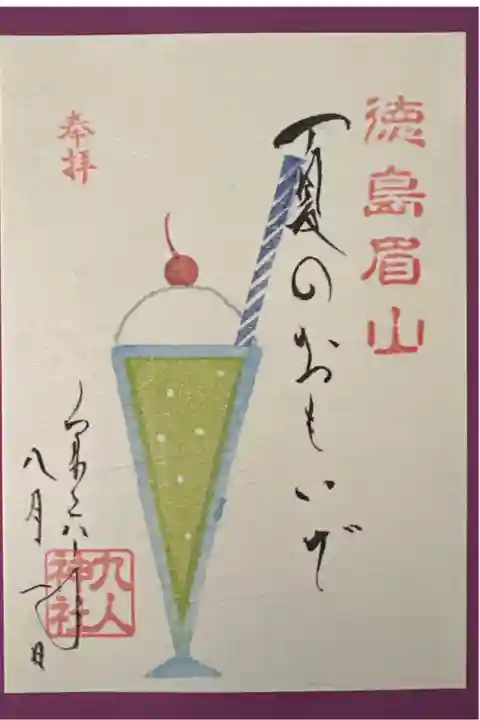 徳島眉山
夏のおもいで
奉拝
令和六年
八月一日
九人神社